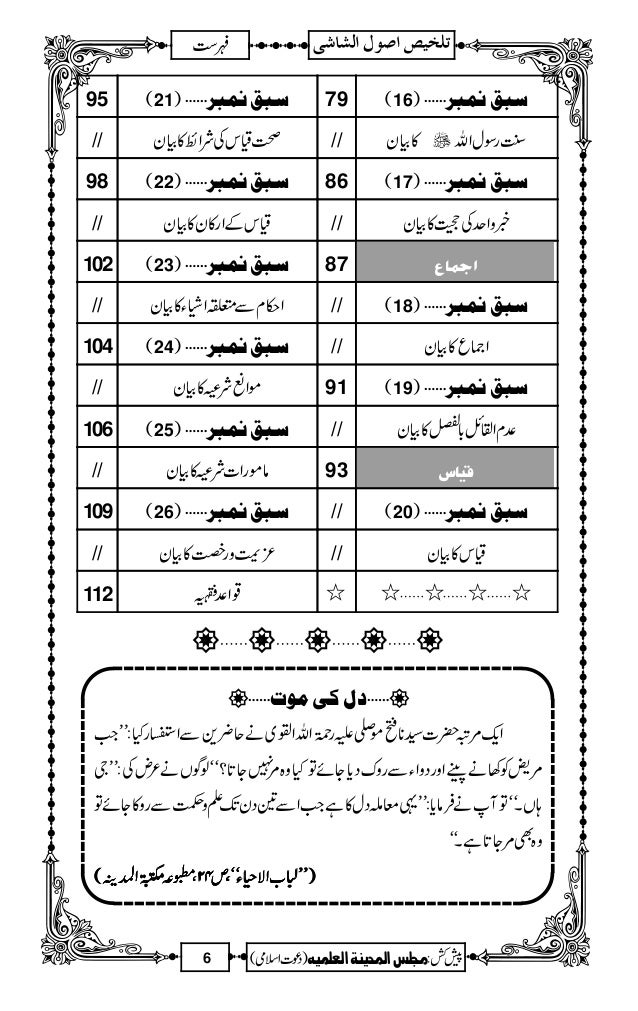 تلخیص اصول الشاشی
فہرست
سبق نمبر ...... (16) 79
سنت رسول اللہ ﷺ کا بیان //
سبق نمبر ...... (17) 86
خبر واحد کی حجیت کا بیان //
اجماع 87
سبق نمبر ...... (18) //
اجماع کا بیان //
سبق نمبر ...... (19) 91
عدم القائل بالفصل کا بیان //
قیاس 93
سبق نمبر ...... (20) //
قیاس کا بیان //
☆......☆......☆......☆ ☆
سبق نمبر ...... (21) 95
صحت قیاس کی شرائط کا بیان //
سبق نمبر ...... (22) 98
قیاس کے ارکان کا بیان //
سبق نمبر ...... (23) 102
احکام سے متعلقہ اشیاء کا بیان //
سبق نمبر ...... (24) 104
موانع شرعیہ کا بیان //
سبق نمبر ...... (25) 106
مامورات شرعیہ کا بیان //
سبق نمبر ...... (26) 109
عزیمت ورخصت کا بیان //
قواعد فقہیہ 112
......دل کی موت......
ایک مرتبہ حضرت سیدنا فتح موصلی علیہ رحمۃ اللہ القوی نے حاضرین سے استفسار کیا:’’جب
مریض کو کھانے پینے اور دواء سے روک دیا جائے تو کیا وہ مر نہیں جاتا؟‘‘لوگوں نے عرض کی :’’جی
ہاں۔‘‘ تو آپ نے فرمایا:’’یہی معاملہ دل کا ہے جب اسے تین دن تک علم و حکمت سے روکا جائے تو
وہ بھی مر جاتا ہے۔‘‘
(’’لباب الاحیاء‘‘،ص۲۴،مطبوعہ مکتبۃ المدینہ)
پیش کش: مجلس المدینة العلمیه (دعوت اسلامی)
6